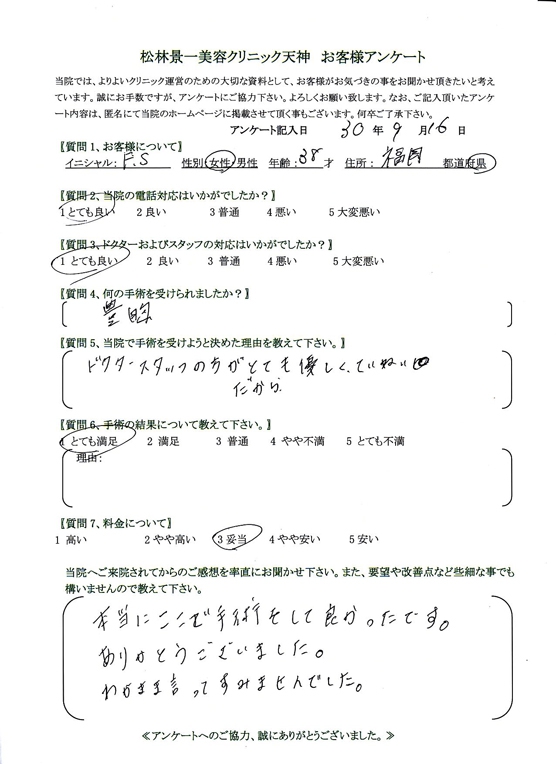 松林景一美容クリニック天神 お客様アンケート
当院では、よりよいクリニック運営のための大切な資料として、お客様がお気づきの事をお聞かせ頂きたいと考え
ています。誠にお手数ですが、アンケートにご協力下さい。よろしくお願い致します。なお、ご記入頂いたアンケ
ート内容は、匿名にて当院のホームページに掲載させて頂く事もございます。何卒ご了承下さい。
アンケート記入日 30 年 9 月 16 日
【質問1、お客様について】
イニシャル: F.S 性別 女性 男性 年齢: 38 才 住所: 福岡 都道府県
【質問2、当院の電話対応はいかがでしたか?】
1 とても良い 2 良い 3 普通 4 悪い 5 大変悪い
【質問3、ドクターおよびスタッフの対応はいかがでしたか?】
1 とても良い 2 良い 3 普通 4 悪い 5 大変悪い
【質問4、何の手術を受けられましたか?】
豊胸
【質問5、当院で手術を受けようと決めた理由を教えて下さい。】
ドクタースタッフの方がとても優しく、ていねい
だから
【質問6、手術の結果について教えて下さい。】
1 とても満足 2 満足 3 普通 4 やや不満 5 とても不満
理由:
【質問7、料金について】
1 高い 2 やや高い 3 妥当 4 やや安い 5 安い
当院へご来院されてからのご感想を率直にお聞かせ下さい。また、要望や改善点など些細な事でも
構いませんので教えて下さい。
本当にここで手術をして良かったです。
ありがとうございました。
わがまま言ってすみませんでした。
≪アンケートへのご協力、誠にありがとうございました。≫